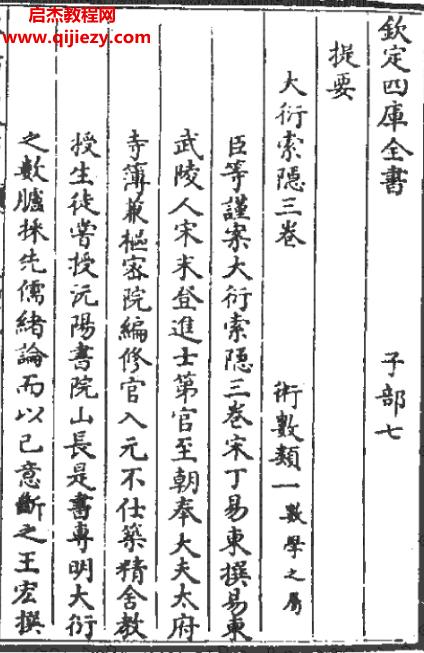 启杰教程网
www.qijiezy.com
欽定四庫全書　子部七
提要　術數類一數學之屬
大衍索隱三卷
臣等謹案大衍索隱三卷宋丁易東撰易東
武陵人宋末登進士第官至朝奉大夫太府
寺簿兼樞密院編修官入元不仕築精舍教
授生徒嘗授沅陽書院山長是書專明大衍
之數臚採先儒緒論而以己意斷之王宏撰